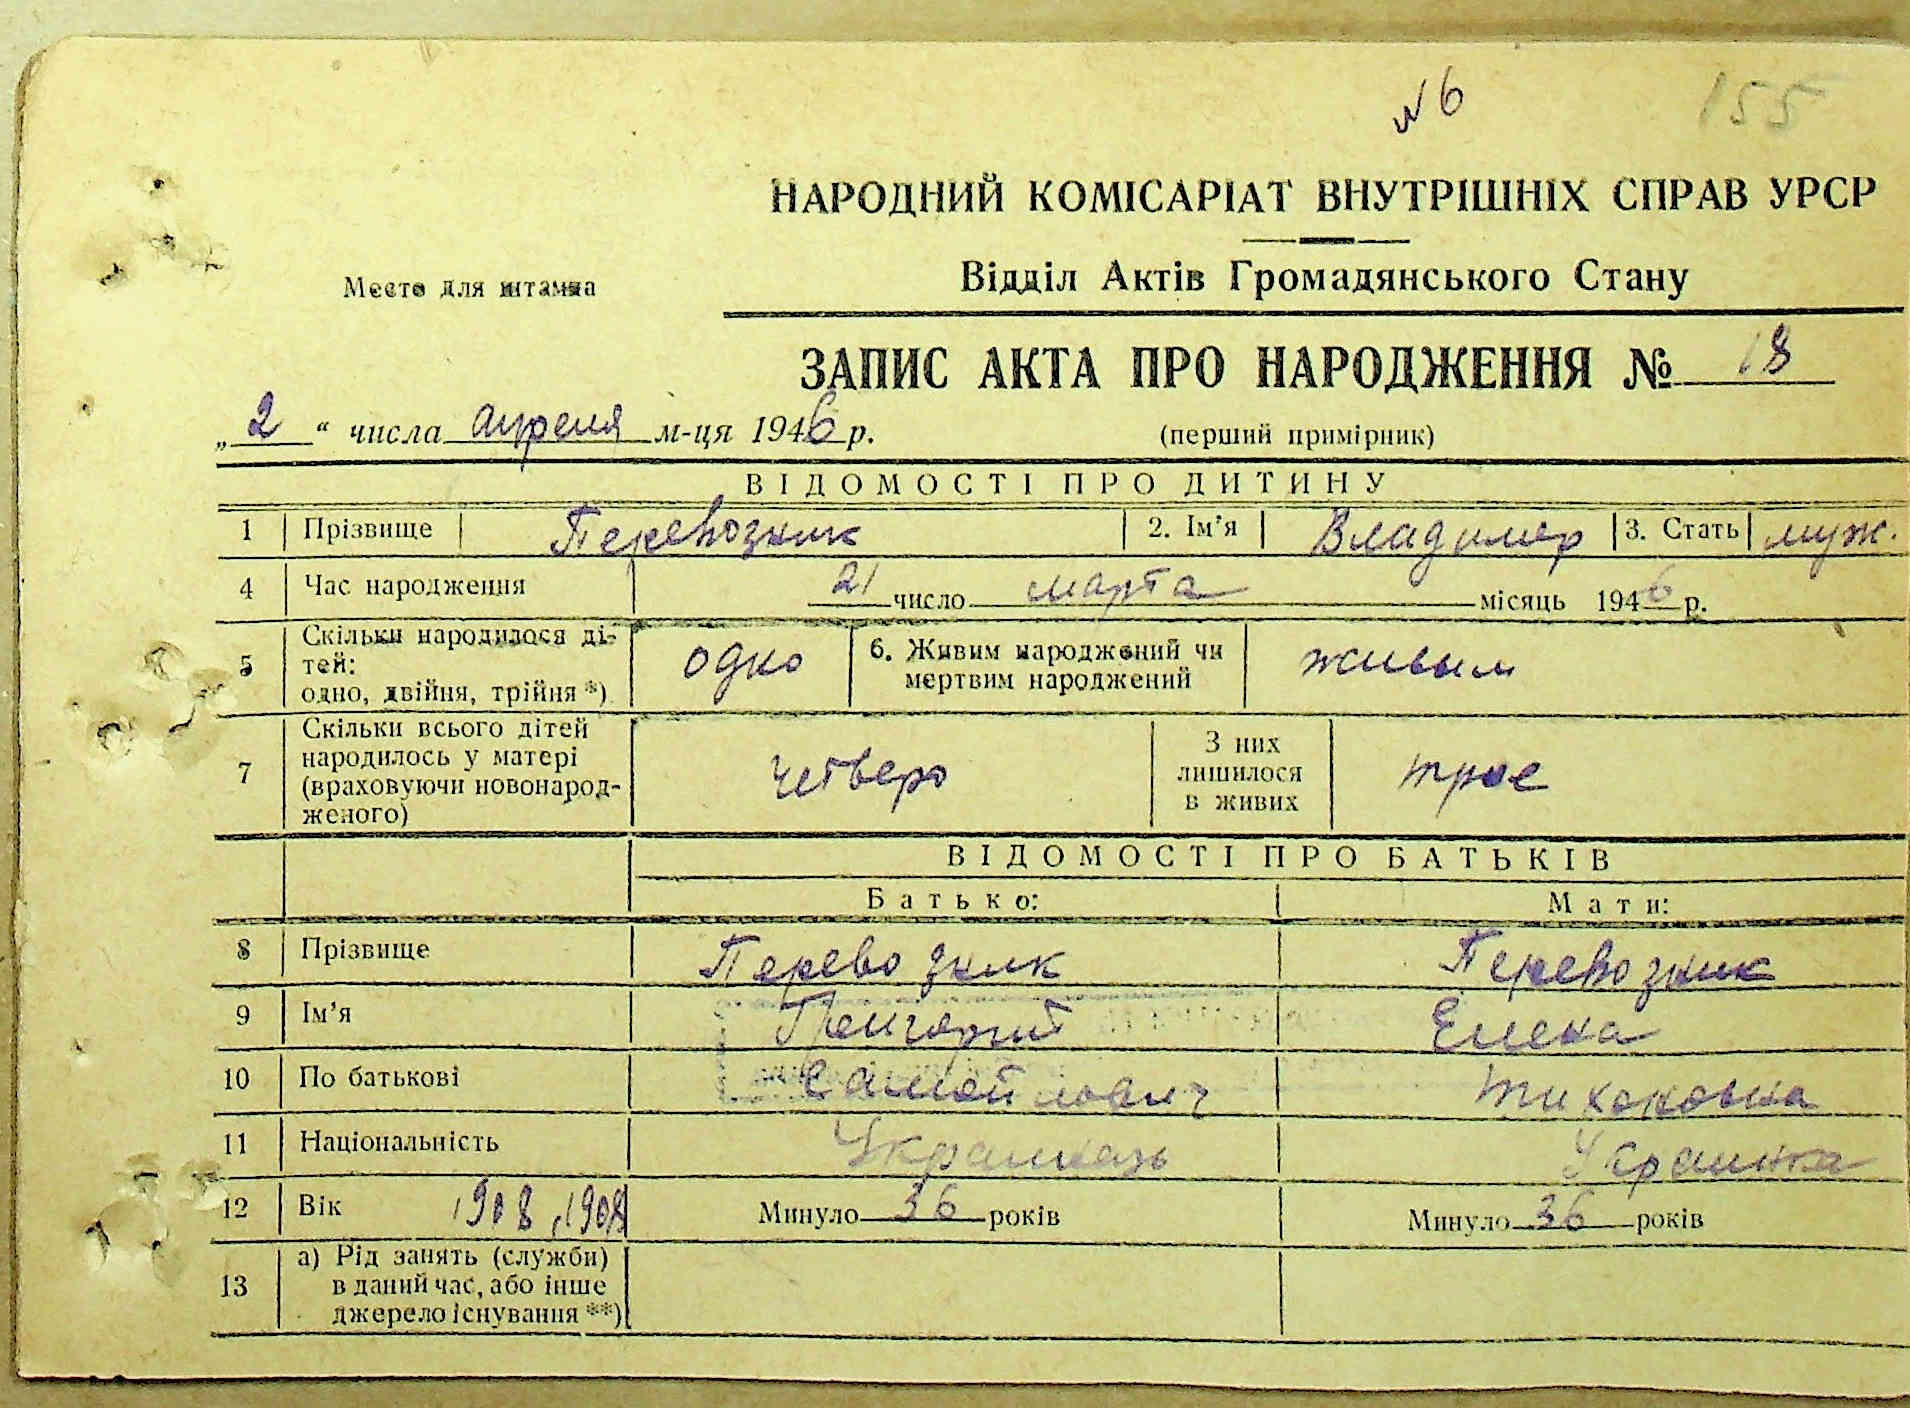 №6 155
НАРОДНИЙ КОМІСАРІАТ ВНУТРІШНІХ СПРАВ УРСР
Место для штампа
Відділ Актів Громадянського Стану
ЗАПИС АКТА ПРО НАРОДЖЕННЯ № 18
„2“ числа апреля м-ця 1946 р. (перший примірник)
ВІДОМОСТІ ПРО ДИТИНУ
1 Прізвище Перевозник 2. Ім’я Владимер 3. Стать муж.
4 Час народження 21 число марта місяць 1946 р.
5 Скільки народилося ді-
тей:
одно, двійня, трійня *) одно 6. Живим народжений чи
мертвим народжений живым
7 Скільки всього дітей
народилось у матері
(враховуючи новонарод-
женого) четверо З них
лишилося
в живих трое
ВІДОМОСТІ ПРО БАТЬКІВ
Батько: Мати:
8 Прізвище Перевозник Перевозник
9 Ім’я Григорий Елена
10 По батькові Самойлович Тихоновна
11 Національність Украинець Украинка
12 Вік 1908, 1908 Минуло 36 років Минуло 36 років
13 а) Рід занять (служби)
в даний час, або інше
джерело існування **)